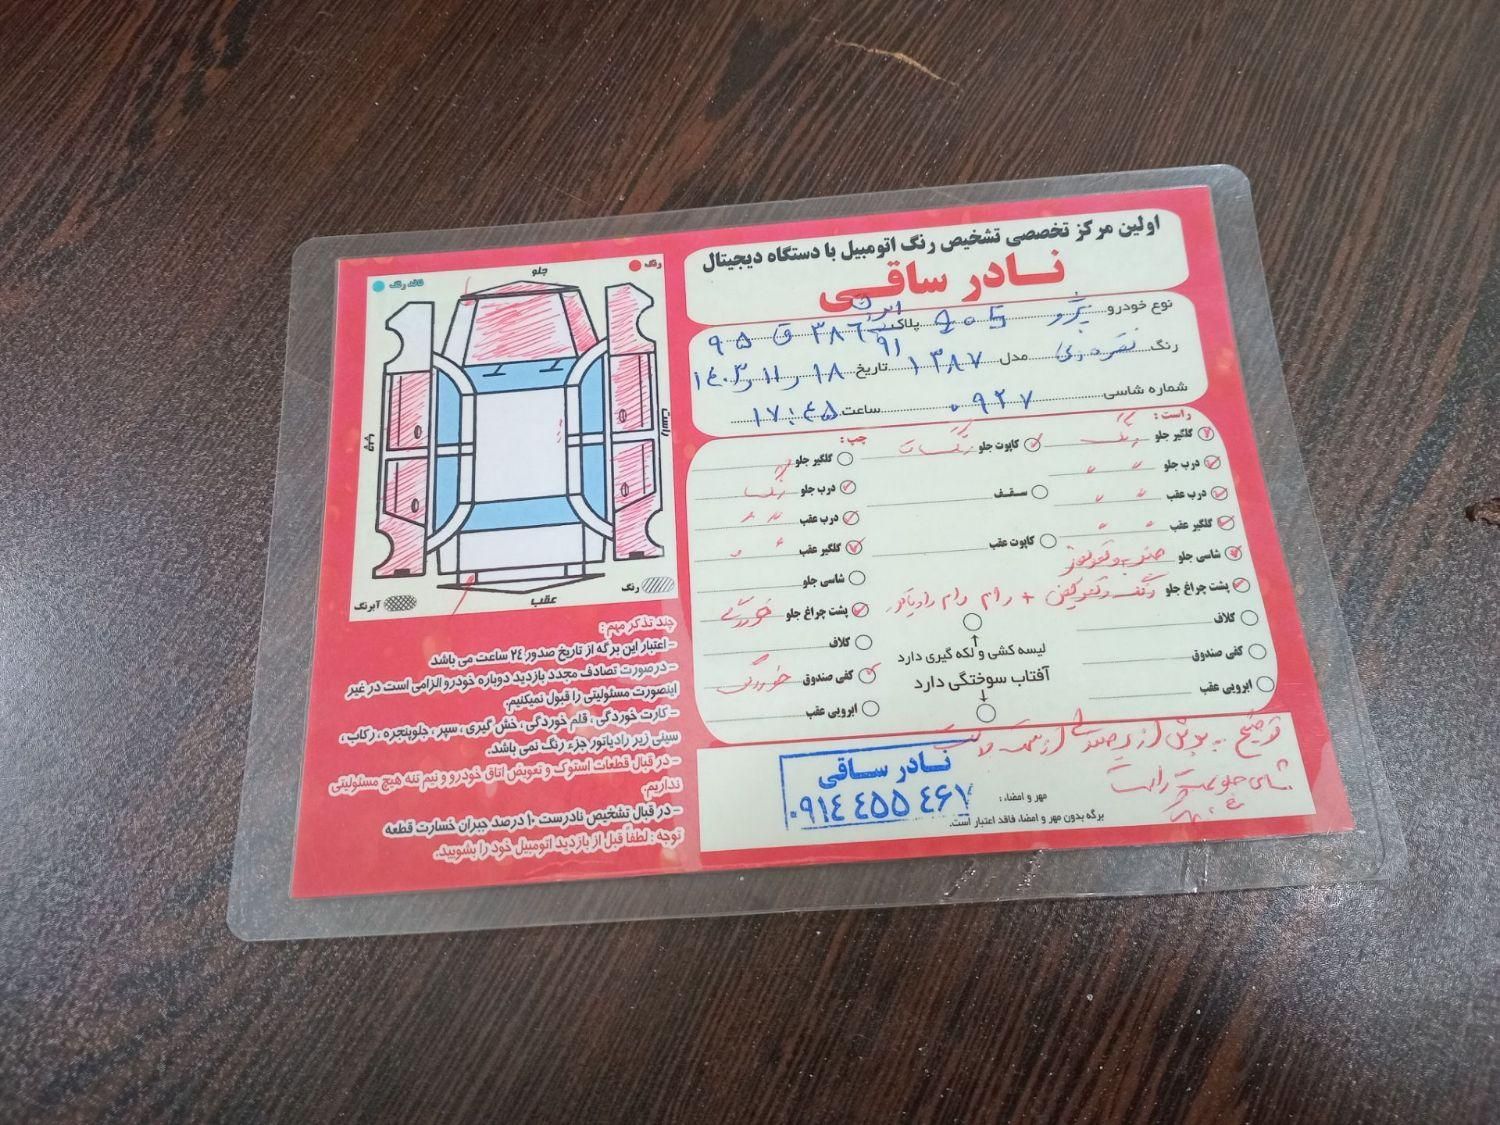 اولین مرکز تخصصی تشخیص رنگ اتومبیل با دستگاه دیجیتال
نادر ساقی
نوع خودرو پژو ۴۰۵ پلاک ایران ۹۱ ۳۸۶ ق ۹۵
رنگ نقره‌ای مدل ۱۳۸۷ تاریخ ۱۸ ۱۱ ۱۴۰۳
شماره شاسی ۰۹۲۷ ساعت ۱۷:۴۵
راست :
گلگیر جلو رنگ
درب جلو " "
درب عقب " "
گلگیر عقب " "
شاسی جلو
پشت چراغ جلو + رام رادیاتور
کلاف
کفی صندوق
ابرویی عقب
کاپوت جلو
سقف
کاپوت عقب
لیسه کشی و لکه گیری دارد
آفتاب سوختگی دارد
چپ :
گلگیر جلو
درب جلو رنگ
درب عقب " "
گلگیر عقب " "
شاسی جلو
پشت چراغ جلو خوردگی
کلاف
کفی صندوق خوردگی
ابرویی عقب
توضیح
شاسی جلو سمت راست
مهر و امضاء :
برگه بدون مهر و امضاء، فاقد اعتبار است.
نادر ساقی
۰۹۱۴ ۴۵۵ ۴۶۷
رنگ
فاقد رنگ
جلو
راست
چپ
عقب
رنگ
آبرنگ
چند تذکر مهم :
- اعتبار این برگه از تاریخ صدور ۲۴ ساعت می باشد
- درصورت تصادف مجدد بازدید دوباره خودرو الزامی است در غیر
اینصورت مسئولیتی را قبول نمیکنیم.
- کارت خوردگی ، قلم خوردگی ، خش گیری ، سپر ، جلوپنجره ، رکاب ،
سینی زیر رادیاتور جزء رنگ نمی باشد.
- در قبال قطعات استوک و تعویض اتاق خودرو و نیم تنه هیچ مسئولیتی
نداریم.
- در قبال تشخیص نادرست ۱۰ درصد جبران خسارت قطعه
توجه : لطفاً قبل از بازدید اتومبیل خود را بشویید.